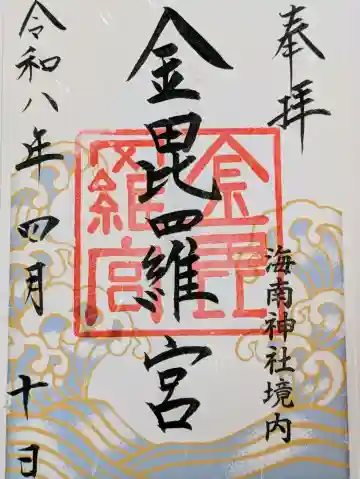 奉拝
海南神社境内
金毘羅宮
金毘羅宮
令和八年四月十日